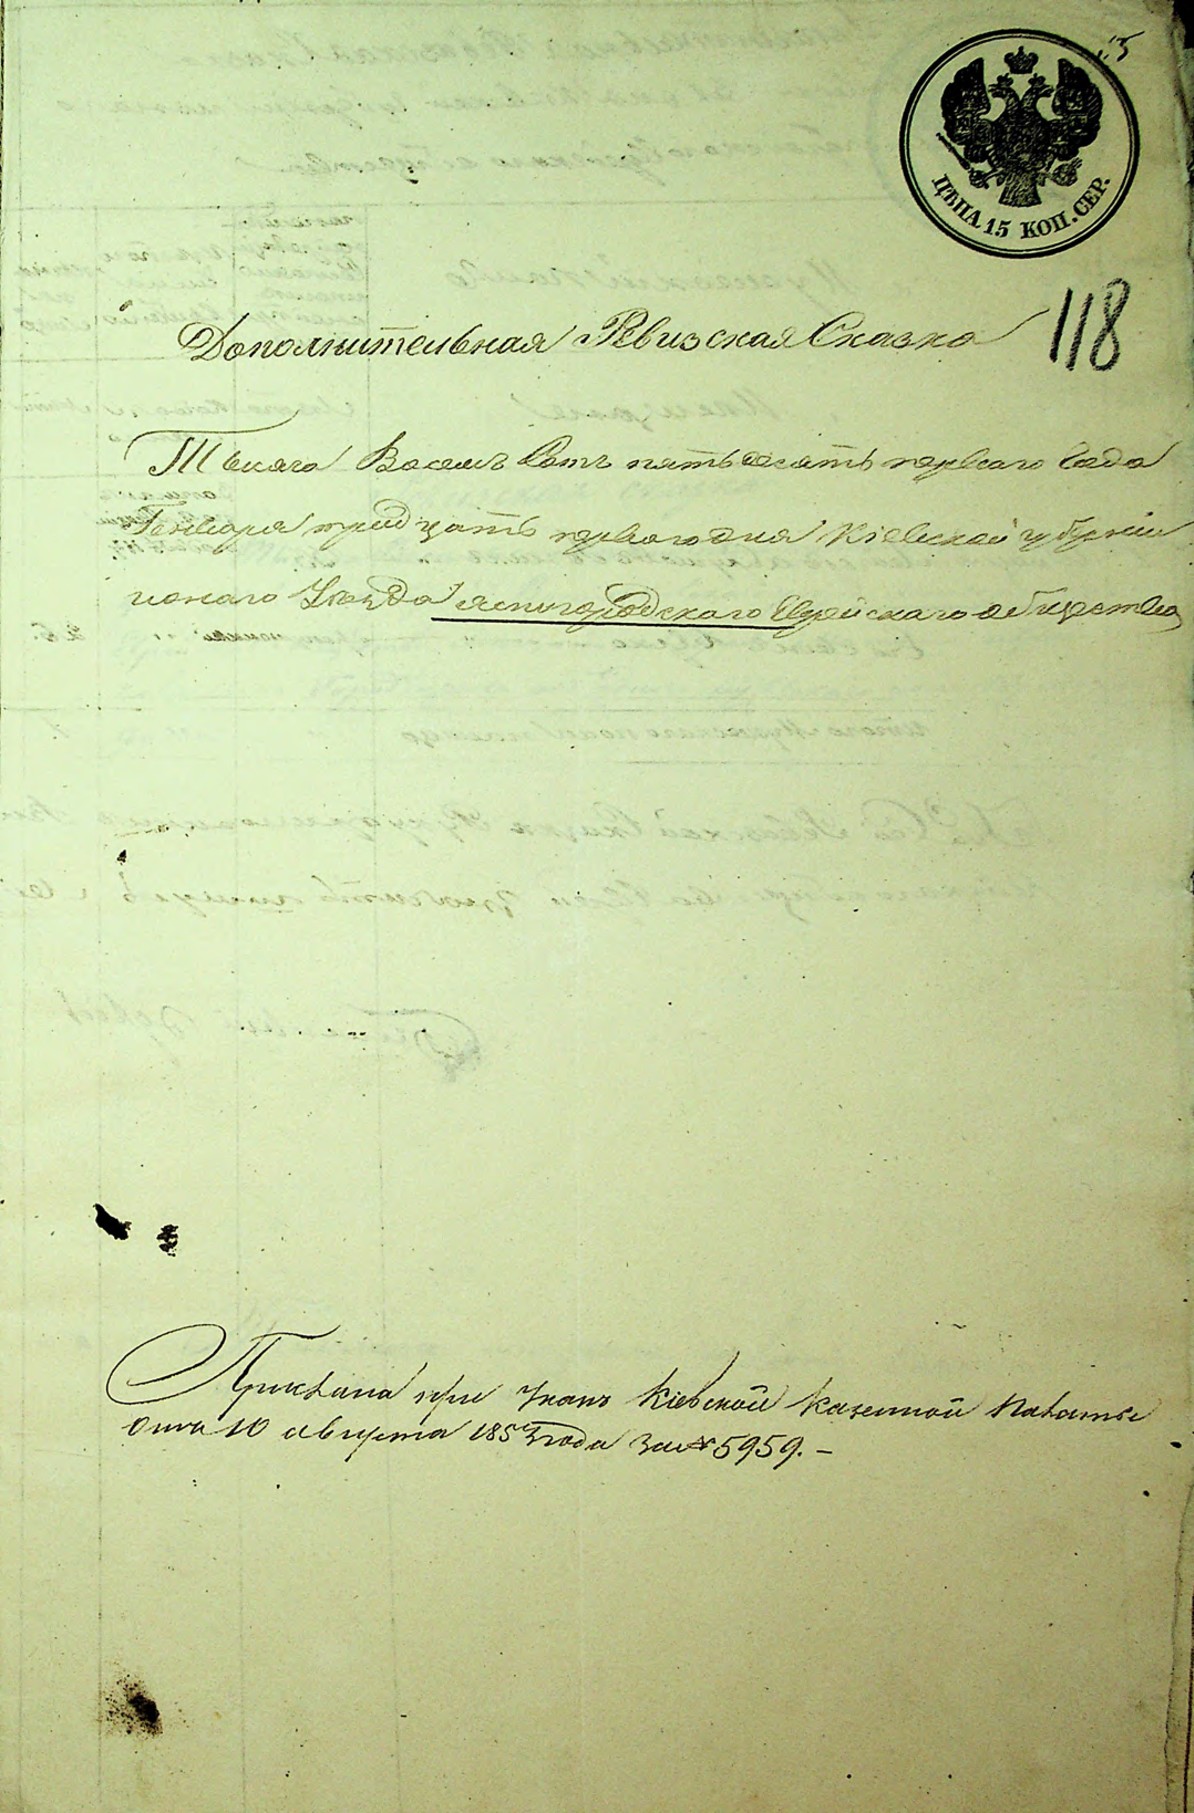 ЦѢНА 15 КОП. СЕР.
118
Дополнительная Ревизская Сказка
Тысяча Восемъ Сотъ пятьдесятъ перваго Года
Генваря тридцать перваго дня Кіевской губерніи
Уѣзда Ясногородскаго Еврейскаго общества
Прислана при Указѣ Кіевской Казенной Палаты
отъ 10 августа 1853 года За № 5959. –